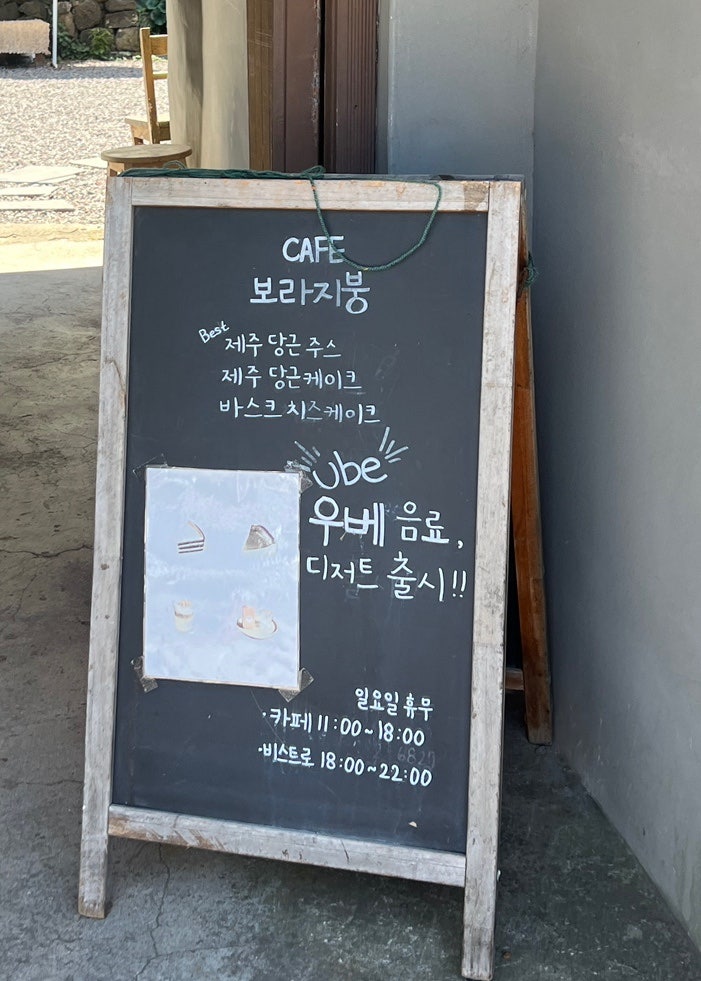 CAFE
보라지붕
Best
제주 당근 주스
제주 당근케이크
바스크 치즈케이크
Ube
우베 음료,
디저트 출시!!
일요일 휴무
·카페 11:00~18:00
·비스트로 18:00~22:00